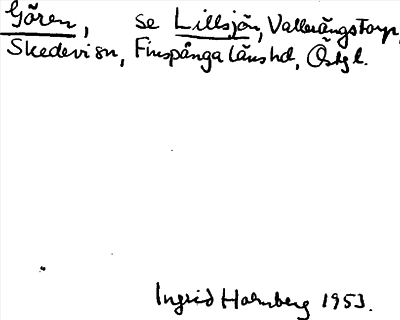 Gören, se Lillsjön, Vallerångstorp,
Skedevi sn, Finspånga länshd, Östgl.
Ingrid Holmberg 1953.